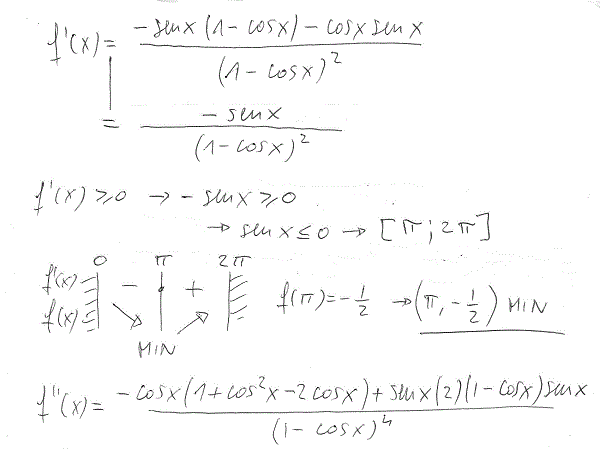 f'(x) = \frac{-sen x (1 - cos x) - cos x sen x}{(1 - cos x)^2}
= \frac{- sen x}{(1 - cos x)^2}
f'(x) ≥ 0 → - sen x ≥ 0
→ sen x ≤ 0 → [π ; 2π]
0 π 2π
f'(x) - +
f(x) ↘ ↗
MIN
f(π) = -\frac{1}{2} → (π, -\frac{1}{2}) MIN
f''(x) = \frac{-cos x (1 + cos^2 x - 2 cos x) + sen x (2)(1 - cos x) sen x}{(1 - cos x)^4}